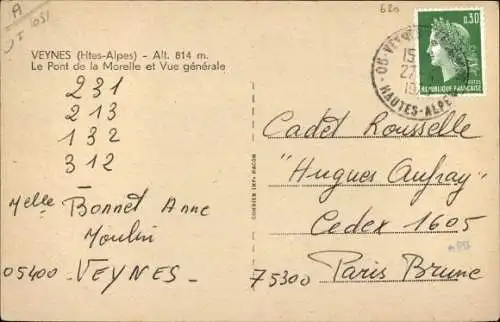 A
1051
620
VEYNES (Htes-Alpes) – Alt. 814 m.
Le Pont de la Morelle et Vue générale
231
213
132
312
Melle Bonnet Anne
Moulin
05400 - VEYNES -
COMBIER IMP. MACON
05 - VEYNES
15
27
HAUTES-ALPES
0,30
POSTES
REPUBLIQUE FRANÇAISE
Cadet Rousselle
"Hugues Aufray"
Cedex 1605
75300 Paris Brune